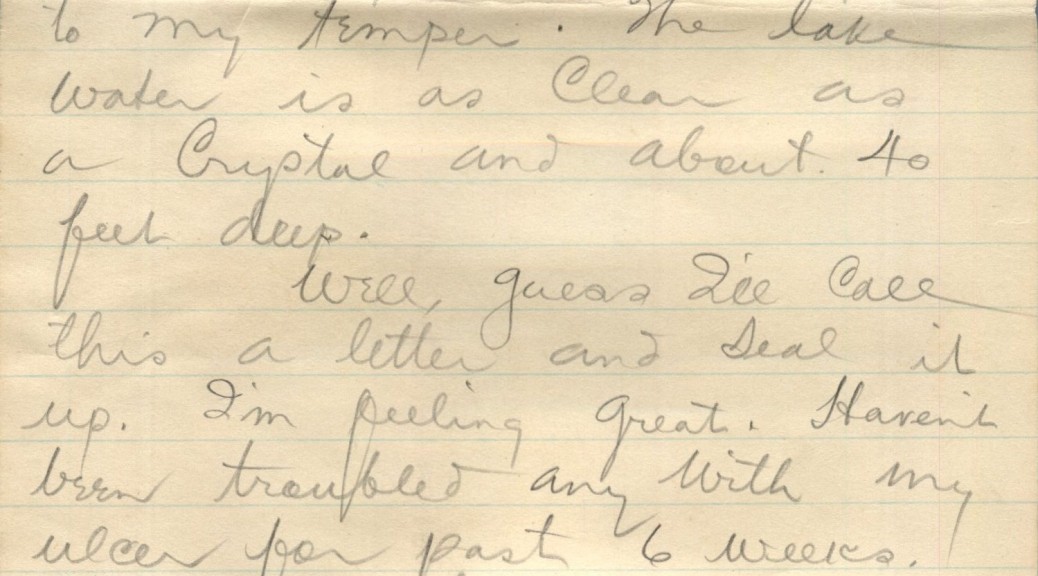 to my temper. The lake
water is as Clear as
a Crystal and about 40
feet deep.
Well, guess I'll Call
this a letter and seal it
up. I'm feeling great. Haven't
been troubled any with my
ulcer for past 6 weeks.